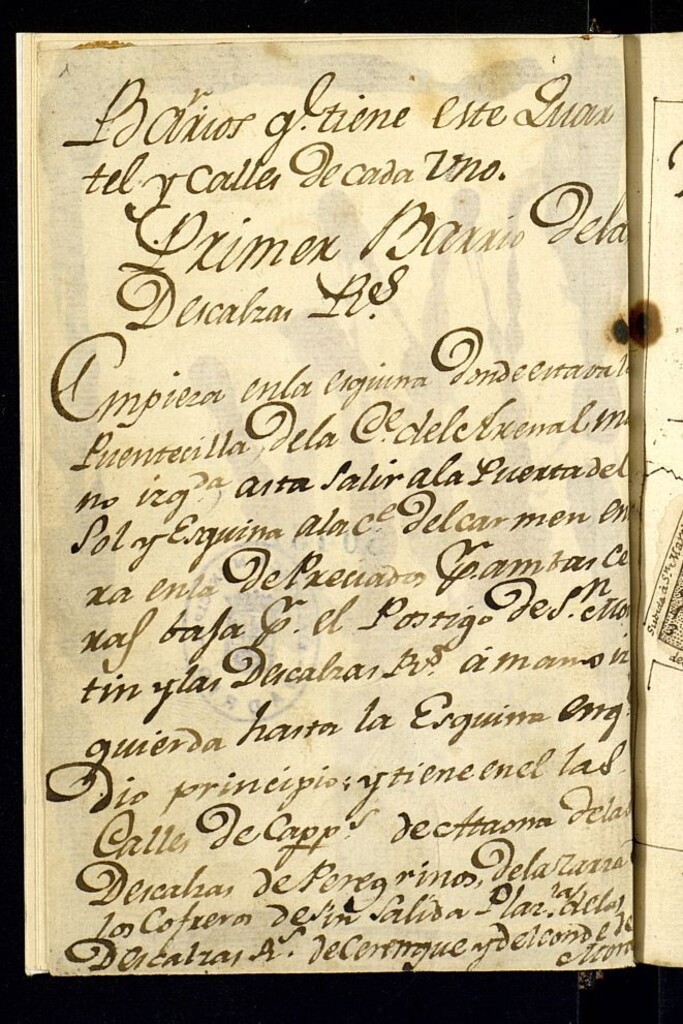 Barrios q.e tiene este Quar
tel y Calles de cada Uno.
Primer Barrio de la
Descalzas R.s
Empieza en la esquina donde estava l
Puentecilla, de la C.e del Arenal, ma
no izq.da asta Salir a la Puerta del
Sol y Esquina a la c.e del carmen en
ra en la de Preciados P.r ambas ce
ras baja P.r el Postigo de S.n Mar
tin y las Descalzas R.s á mano iz
quierda hasta la Esquina en q.e
Dio principio; y tiene en el las
Calles de Capp.s de de las
Descalzas de Peregrinos, de la Zarza
los Cofreros de sin Salida Plaz.las de las
Descalzas R.s de Cerenque y del conde de
Mora
Subida á S.ta Mari